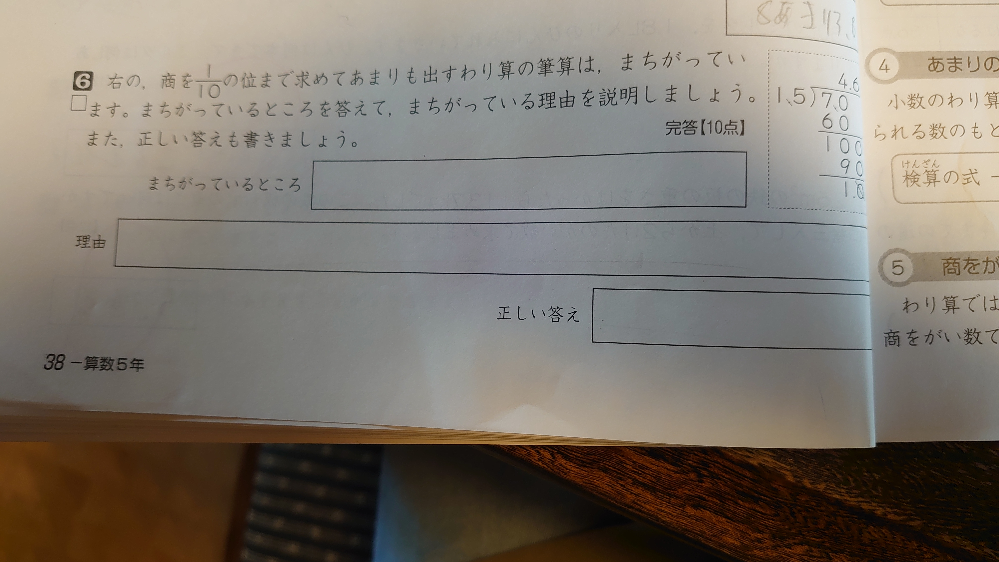 6 右の，商を1/10の位まで求めてあまりも出すわり算の筆算は，まちがってい
ます。まちがっているところを答えて，まちがっている理由を説明しましょう。
また，正しい答えも書きましょう。
完答【10点】
4.6
1.5)7.0
60
100
90
1.0
まちがっているところ
理由
正しい答え
38－算数5年
4 あまりの
小数のわり算
られる数のもと
けんざん
検算の式
5 商をが
わり算では
商をがい数で